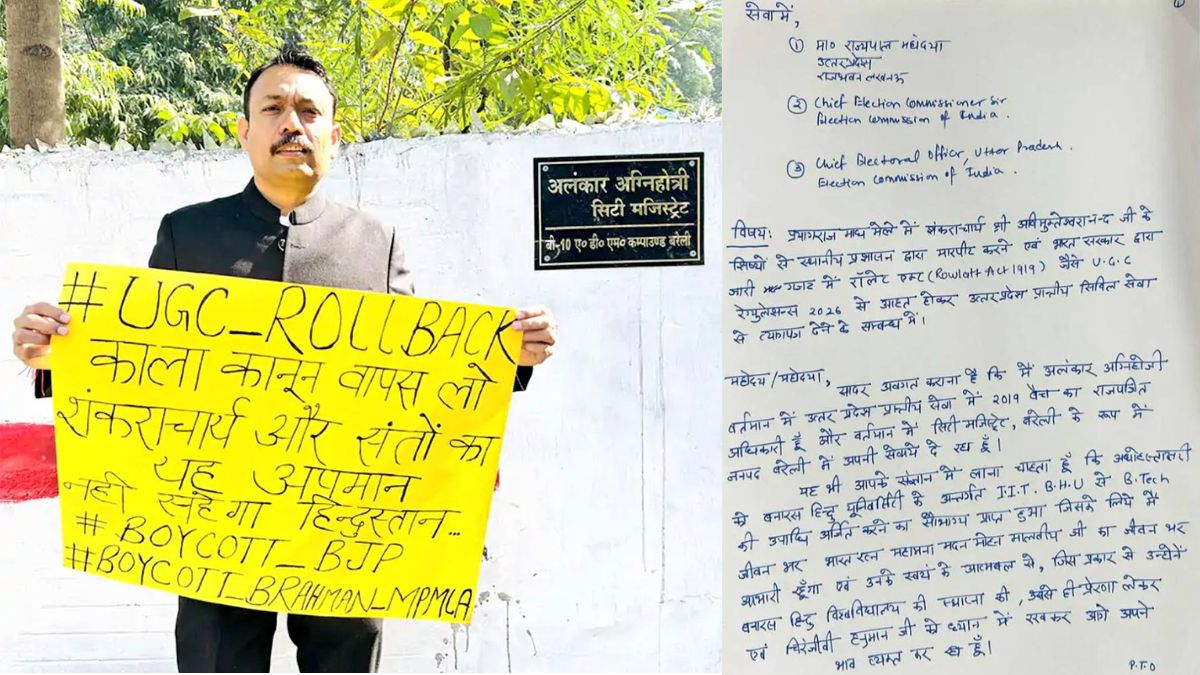 #UGC_ROLLBACK
काला कानून वापस लो
शंकराचार्य और संतों का
यह अपमान
नही सहेगा हिन्दुस्तान...
# BOYCOTT_BJP
#BOYCOTT_BRAHMAN_MPMLA
अलंकार अग्निहोत्री
सिटी मजिस्ट्रेट
बी-10 ए० डी० एम० कम्पाउण्ड बरेली
सेवा में,
① मा० राज्यपाल महोदया
उत्तर प्रदेश
राजभवन लखनऊ
② Chief Election Commissioner Sir
Election Commission of India.
③ Chief Electoral Officer, Uttar Pradesh.
Election Commission of India.
विषय: प्रयागराज माघ मेले में शंकराचार्य श्री अविमुक्तेश्वरानन्द जी के
शिष्यों से स्थानीय प्रशासन द्वारा मारपीट करने एवं भारत सरकार द्वारा
जारी गजट में रॉलेट एक्ट (Rowlatt Act 1919) जैसे U.G.C
रेगुलेसन्स 2026 से आहत होकर उत्तर प्रदेश प्रान्तीय सिविल सेवा
से त्यागपत्र देने के सम्बन्ध में।
महोदय/महोदया,
सादर अवगत कराना है कि मैं अलंकार अग्निहोत्री
वर्तमान में उत्तर प्रदेश प्रान्तीय सेवा में 2019 बैच का राजपत्रित
अधिकारी हूँ और वर्तमान में सिटी मजिस्ट्रेट, बरेली के रूप में
जनपद बरेली में अपनी सेवायें दे रहा हूँ।
यह भी आपके संज्ञान में लाना चाहता हूँ कि अधोहस्ताक्षरी
को बनारस हिन्दू यूनिवर्सिटी के अन्तर्गत I.I.T. B.H.U से B.Tech
की उपाधि अर्जित करने का सौभाग्य प्राप्त हुआ जिसके लिये मैं
जीवन भर भारत रत्न महामना मदन मोहन मालवीय जी का जीवन भर
आभारी रहूँगा एवं उनके स्वयं के आत्मबल से, जिस प्रकार से उन्होंने
बनारस हिन्दू विश्वविद्यालय की स्थापना की, उससे ही प्रेरणा लेकर
एवं चिरंजीवी हनुमान जी को ध्यान में रखकर आगे अपने
भाव व्यक्त कर रहा हूँ।
P.T.O